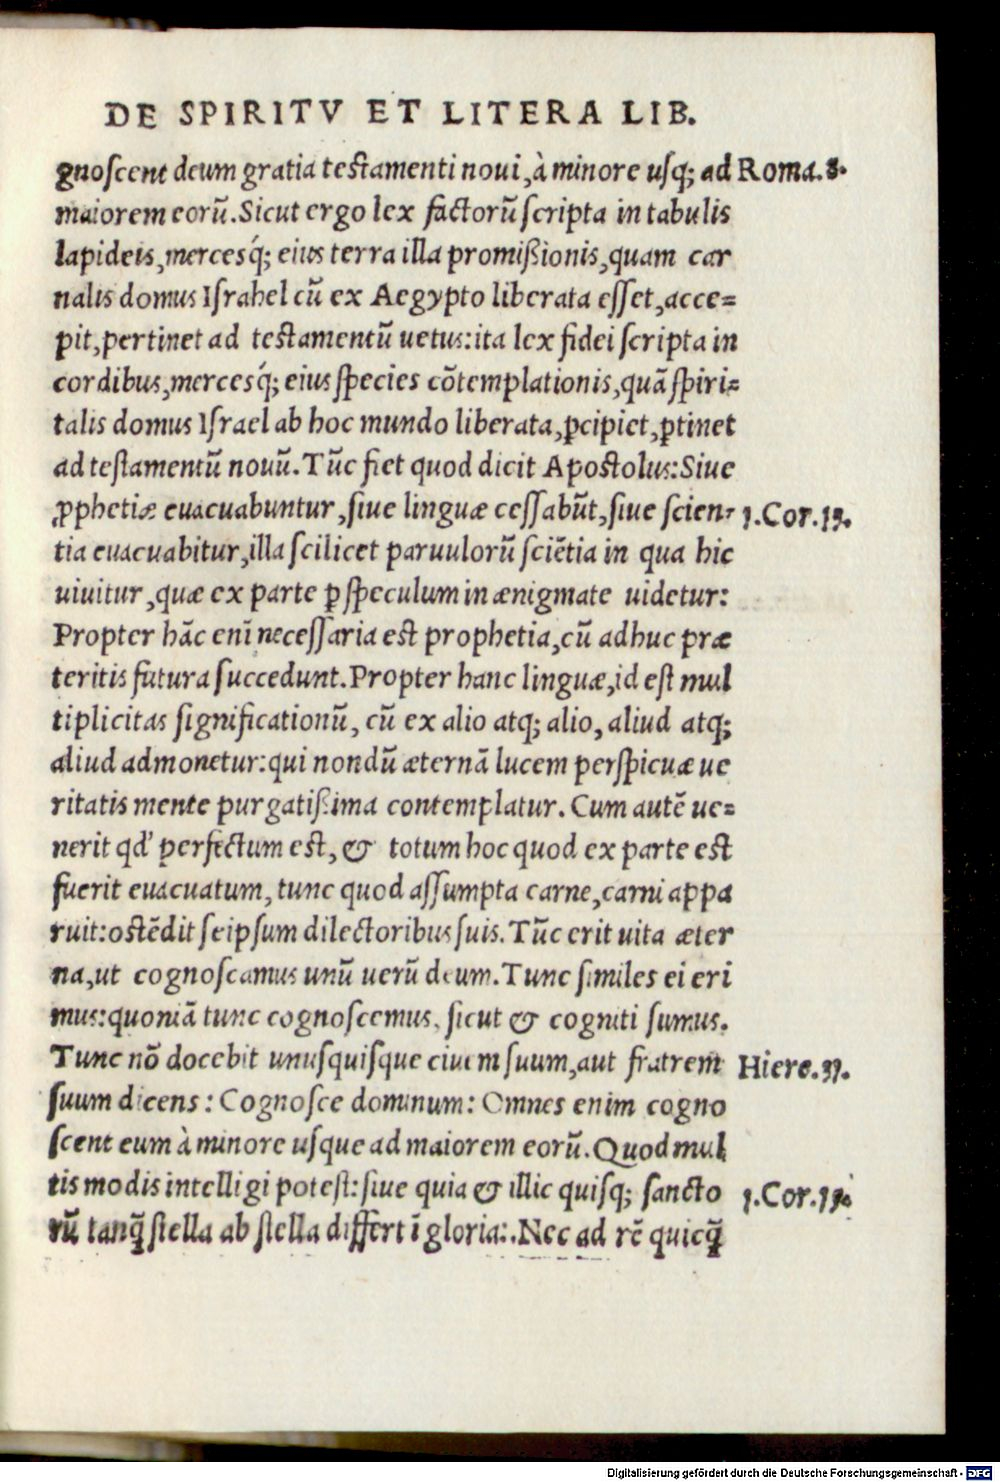 DE SPIRITV ET LITERA LIB.
gnoſcent deum gratia teſtamenti noui, à minore uſq; ad Roma.8.
maiorem eorũ. Sicut ergo lex factorũ ſcripta in tabulis
lapideis, merceśq; eius terra illa promißionis, quam car
nalis domus Iſrahel cũ ex Aegypto liberata eſſet, acce=
pit, pertinet ad teſtamentũ uetus: ita lex fidei ſcripta in
cordibus, merceśq; eius ſpecies cõtemplationis, quã ſpiri=
talis domus Iſrael ab hoc mundo liberata, ꝑcipiet, ꝑtinet
ad teſtamentũ nouũ. Tũc fiet quod dicit Apoſtolus: Siue
ꝓphetiæ euacuabuntur, ſiue linguæ ceſſabũt, ſiue ſcien= 1.Cor.13.
tia euacuabitur, illa ſcilicet paruulorũ ſciẽtia in qua hic
uiuitur, quæ ex parte ꝑ ſpeculum in ænigmate uidetur:
Propter hãc enĩ neceſſaria eſt prophetia, cũ adhuc præ
teritis futura ſuccedunt. Propter hanc linguæ, id eſt mul
tiplicitas ſignificationũ, cũ ex alio atq; alio, aliud atq;
aliud admonetur: qui nondũ æternã lucem perſpicuæ ue
ritatis mente purgatißima contemplatur. Cum autẽ ue=
nerit qd' perfectum eſt, & totum hoc quod ex parte eſt
fuerit euacuatum, tunc quod aſſumpta carne, carni appa
ruit: oſtẽdit ſeipſum dilectoribus ſuis. Tũc erit uita æter
na, ut cognoſcamus unũ uerũ deum. Tunc ſimiles ei eri
mus: quoniã tunc cognoſcemus, ſicut & cogniti ſumus.
Tunc nõ docebit unuſquiſque ciuem ſuum, aut fratrem Hiere.31.
ſuum dicens: Cognoſce dominum: Omnes enim cogno
ſcent eum à minore uſque ad maiorem eorũ. Quod mul
tis modis intelligi poteſt: ſiue quia & illic quiſq; ſancto 1.Cor.15.
rũ tanq̃ ſtella ab ſtella differt ĩ gloria:. Nec ad rẽ quicq̃
Digitalisierung gefördert durch die Deutsche Forschungsgemeinschaft - DFG